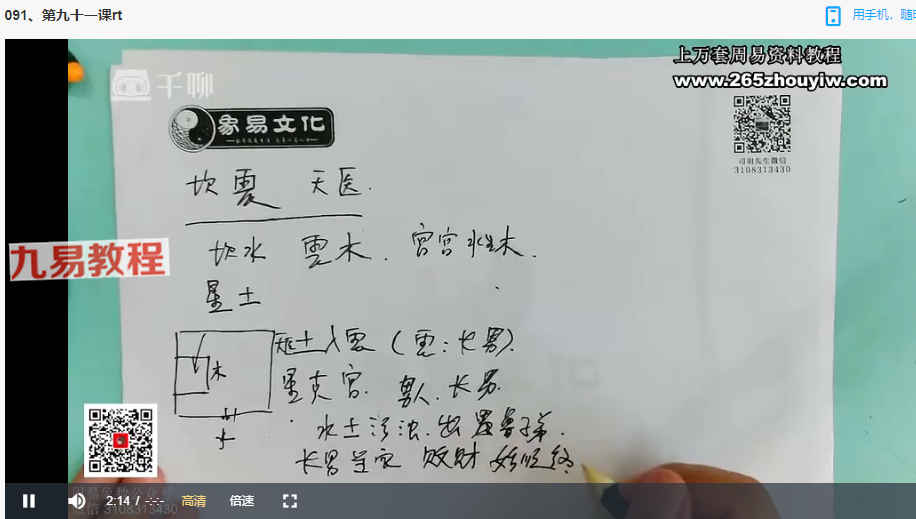 091、第九十一课rt
用手机，随时
上万套周易资料教程
www.265zhouyiw.com
千聊
象易文化
3108313430
坎震 天医.
坎水 震木. 宫宫水生木.
九易教程
星土
土入震 (震:长男).
木
星克宫. 男人. 长男.
水土污浊. 出愚鲁子弟.
长男 败财 始顺终
2:14 / -:-
高清
倍速
3108313430